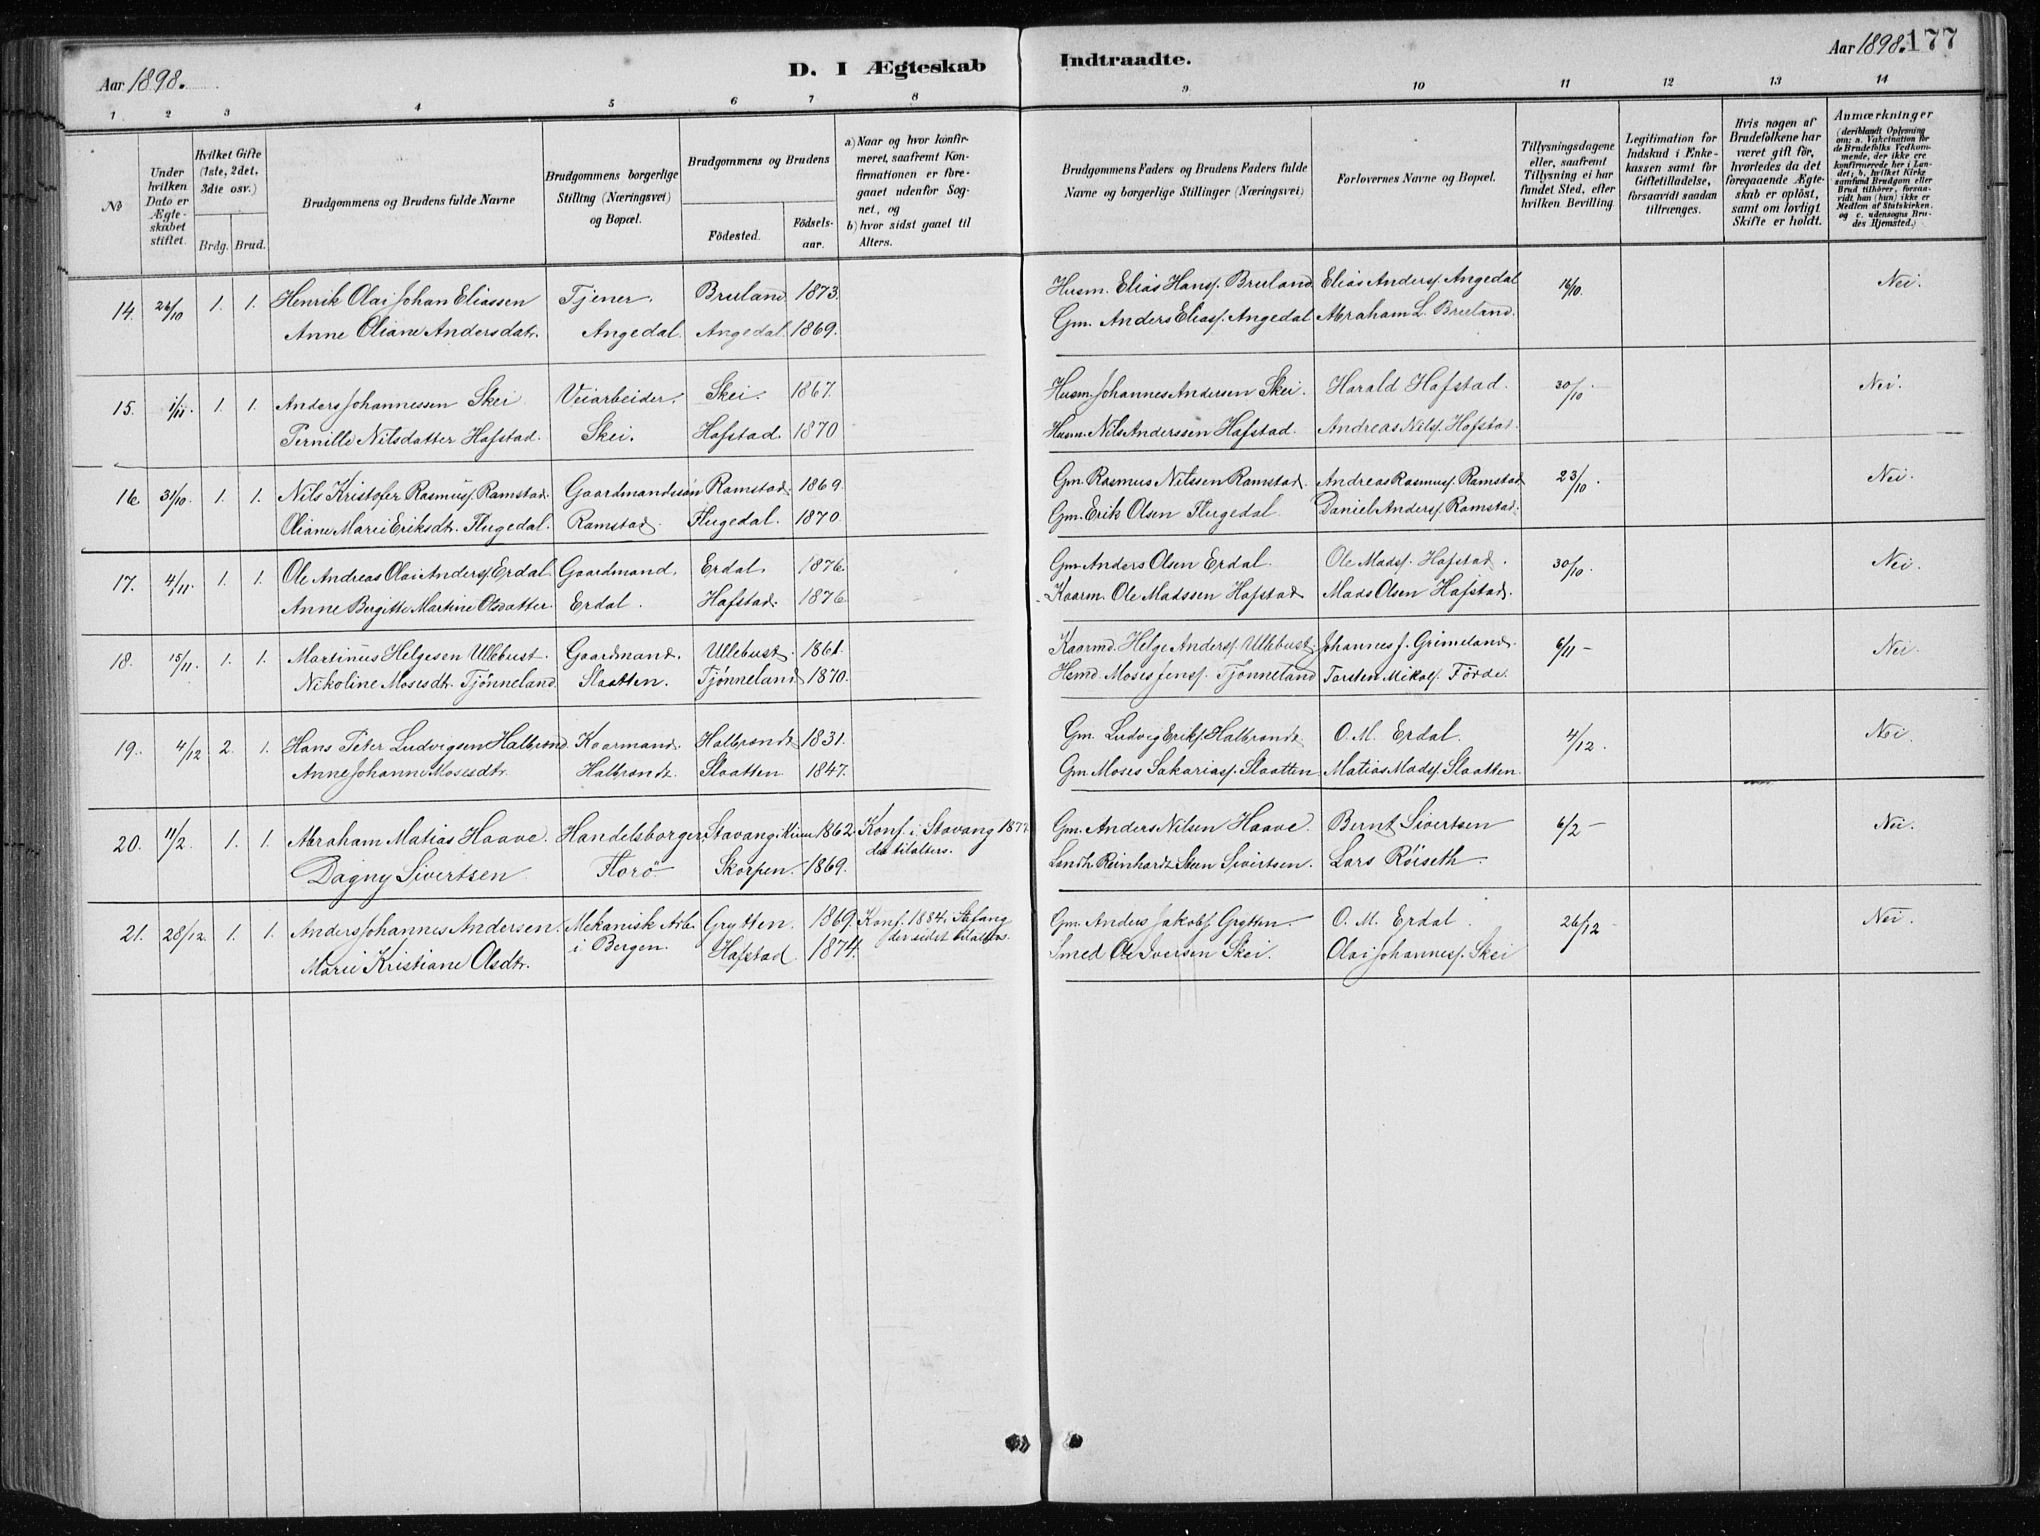 Aar 1898.
D. I Ægteskab Indtraadte.
Aar 1898. 177
1 2 3 4 5 6 7 8 9 10 11 12 13 14
No
Under hvilken Dato er Ægteskabet stiftet.
Hvilket Gifte (1ste, 2det, 3die osv.)
Brdg. Brud.
Brudgommens og Brudens fulde Navne
Brudgommens borgerlige Stilling (Næringsvei) og Bopæl.
Brudgommens og Brudens
Födested. Födselsaar.
a) Naar og hvor konfirmeret, saafremt Konfirmationen er foregaaet udenfor Sognet, og
b) hvor sidst gaaet til Alters.
Brudgommens Faders og Brudens Faders fulde Navne og borgerlige Stillinger (Næringsvei)
Forlovernes Navne og Bopæl.
Tillysningsdagene eller, saafremt Tillysning ei har fundet Sted, efter hvilken Bevilling
Legitimation for Indskud i Enkekassen samt for Giftetilladelse, forsaavidt saadan tiltrænges.
Hvis nogen af Brudefolkene har været gift för, hvorledes da det foregaaende Ægteskab er oplöst, samt om lovligt Skifte er holdt.
Anmærkninger
(deriblandt Oplysning om: a. Vakcination for de Brudefolks Vedkommende, der ikke ere konfirmerede her i Landet; b. hvilket Kirkesamfund Brudgom eller Brud tilhörer, forsaavidt han (hun) ikke er Medlem af Statskirken, og c. udensogns Brudes Hjemsted.)
14. 26/10 1. 1. Henrik Olai Johan Eliassen Tjener. Bruland 1873. Husm. Elias Hansf. Bruland Elias Andersf. Angedal 16/10. Nei.
Anne Oliane Andersdatr. Angedal. Angedal. 1869. Gm. Anders Eliasf. Angedal Abraham L. Bruland.
15. 1/11. 1. 1. Anders Johannessen Skei Veiarbeider. Skei. 1867. Husm. Johannes Andersen Skei. Harald Hafstad. 30/10 Nei.
Pernille Nilsdatter Hafstad. Skei. Hafstad. 1870 Husm. Nils Anderssen Hafstad. Andreas Nilsf. Hafstad.
16. 31/10. 1. 1. Nils Kristofer Rasmusf. Ramstad. Gaardmandssøn Ramstad. 1869. Gm. Rasmus Nilssen Ramstad. Andreas Rasmusf. Ramstad 23/10. Nei.
Oliane Marie Eriksdtr. Flugedal. Ramstad. Flugedal. 1870. Gm. Erik Olsen Flugedal. Daniel Andersf. Ramstad.
17. 4/11. 1. 1. Ole Andreas Olai Andersf. Erdal. Gaardmand. Erdal. 1876. Gm. Anders Olsen Erdal. Ole Madsf. Hafstad. 30/10. Nei.
Anne Bergitte Martine Olsdatter. Erdal. Hafstad. 1876. Kaarm. Ole Madssen Hafstad Mads Olsen Hafstad.
18. 15/11. 1. 1. Martinus Helgesen Ullebust. Gaardmand. Ullebust. 1861. Kaarmd. Helge Andersf. Ullebust. Johannes J. Grimeland. 6/11 - Nei.
Nikoline Mosesdtr. Tjønneland. Slaatten. Tjønneland 1870. Hsmd. Moses Jensf. Tjönneland Torsten Mikalf. Förde.
19. 4/12 2. 1. Hans Peter Ludvigsen Halbrend. Kaarmand. Halbrendt 1831. Gm. Ludvig Eriksf. Halbrendt. O. M. Erdal. 4/12. Nei.
Anne Johanne Mosesdtr. Halbrendt. Slaatten 1847. Gm Moses Sakariasf. Slaatten Matias Madsf. Slaatten
20. 11/2. 1. 1. Abraham Matias Haave. Handelsborger, Stavang i Kinn 1862. Konf. i Stavang 187 Gm. Anders Nilsen Haave. Bernt Sivertsen 6/2 - Nei.
Dagny Sivertsen Florö Skorpen. 1869. tilalters. Landh. Reinhardt Steen Sivertsen. Lars Röiseth.
21. 28/12. 1. 1. Anders Johannes Andersen. Mekanisk Arb. Grytten. 1869. Konf. 1884 i Stafang Gm. Anders Jakobf. Grytten. O. M. Erdal. 26/12 Nei.
Marie Kristiane Olsdtr. i Bergen. Hafstad. 1874. der sidst tilalters. Smed Ole Iversen Skei. Olai Johannesf. Skei